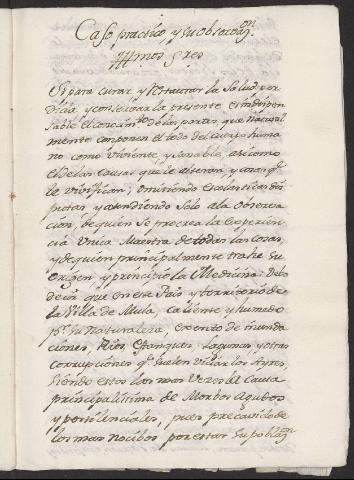 Caso practico, y su observaon.
Illmos Sres
Si para curar, y restaurar la Salud per
dida, y conservar la presente es indispen
sable el conocimto. de las partes, que natural
mente componen el todo del cuerpo huma
no como viviente, y sensible, asi como
el de las Causas que le alteran, y cosas qe.
le vivifican; omitiendo escolasticas dis
putas y atendiendo solo a la Observa
cion, de quien se procrea la Experien
cia Unica Maestra de todas las cosas,
y de quien principalmente trahe su
origen, y principio la Medicina: Debo
decir que en este Pais y territorio de
la Villa de Mula, caliente y humedo
pr. su Naturaleza, exento de inunda
ciones, Rios, estanques, lagunas y otras
corrupciones qe. suelen viciar los Ayres,
siendo estos las mas veces la Causa
principalisima de Morbos Agudos
y pestilenciales, pues precavido de
los mas nocibos por estar su poblaon